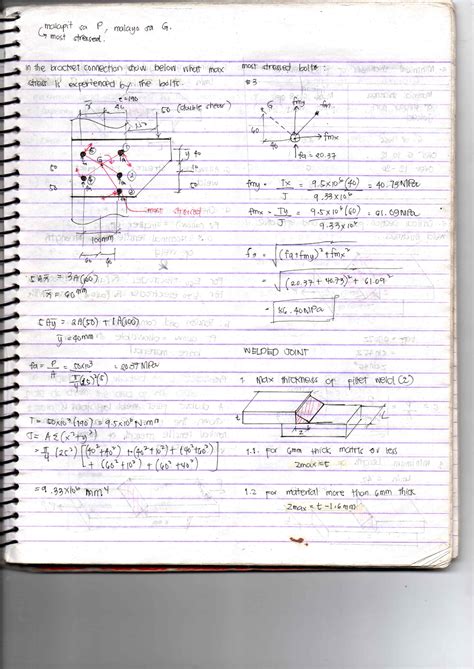 malapit sa P, malayo sa G.
G most stressed.
In the bracket connection show below what max
stress is experienced by the bolts.
50 (double shear)
40
50
50
60
most stressed
100mm
5A x̄ = 3A(100)
x̄ = 60 mm
5Aȳ = 2A(50) + 1A(100)
ȳ = 40mm
fa = P/A = 50x10³ / π/4 (25)²(5) = 20.37 MPa
T = 50x10³ (190) = 9.5x10⁶ N·mm
J = A Σ(x²+y²)
= π/4 (25²) [(40²+40²) + (40²+10²) + (40²+60²)
+ (60²+10²) + (60²+40²)]
= 9.33x10⁶ mm⁴
most stressed bolts:
#3
G
fmy
fmx
60
40
fa = 20.37
fmy = Tx/J = 9.5x10⁶ (40) / 9.33x10⁶ = 40.73 MPa
fmx = Ty/J = 9.5x10⁶ (60) / 9.33x10⁶ = 61.09 MPa
= √((fa+fmy)² + fmx²)
= √((20.37 + 40.73)² + 61.09²)
= 86.40 MPa
WELDED JOINT
1. Max thickness of fillet weld (z)
t
z
L
1.1. for 6mm thick or less
zmax = t
1.2 for material more than 6mm thick
zmax = t - 1.6mm